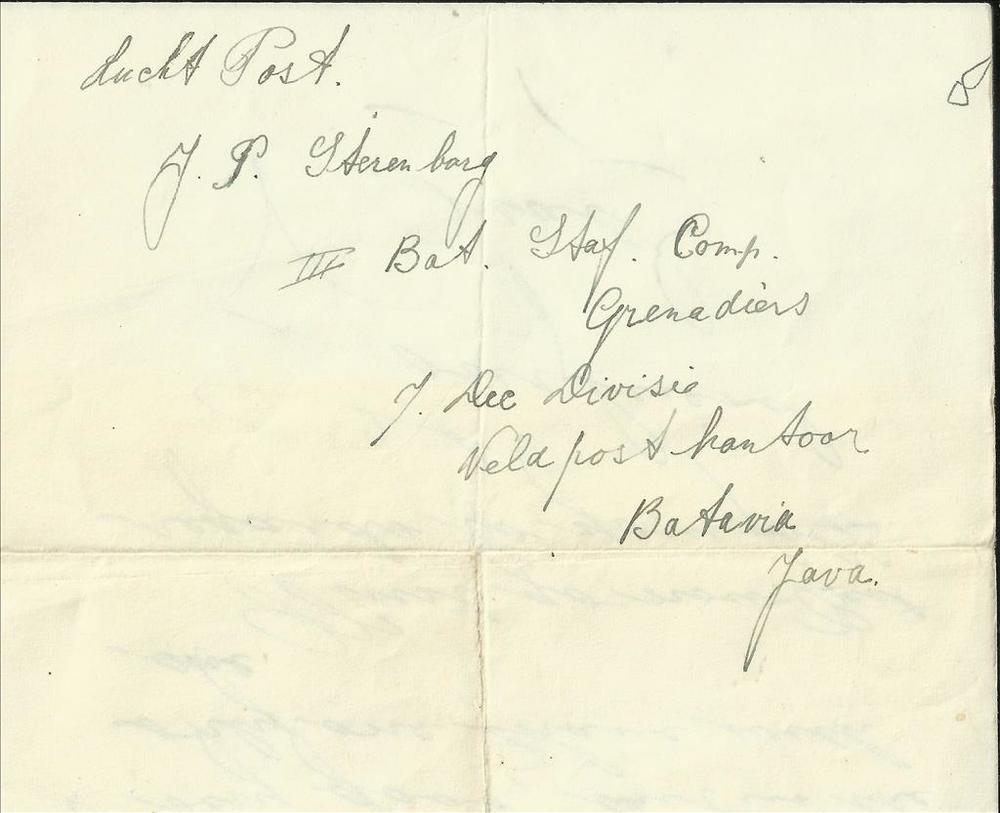 Lucht Post.
J. P. Sterenborg
III Bat. Staf. Comp.
Grenadiers
7. Dec Divisie
Veldpostkantoor
Batavia
Java.